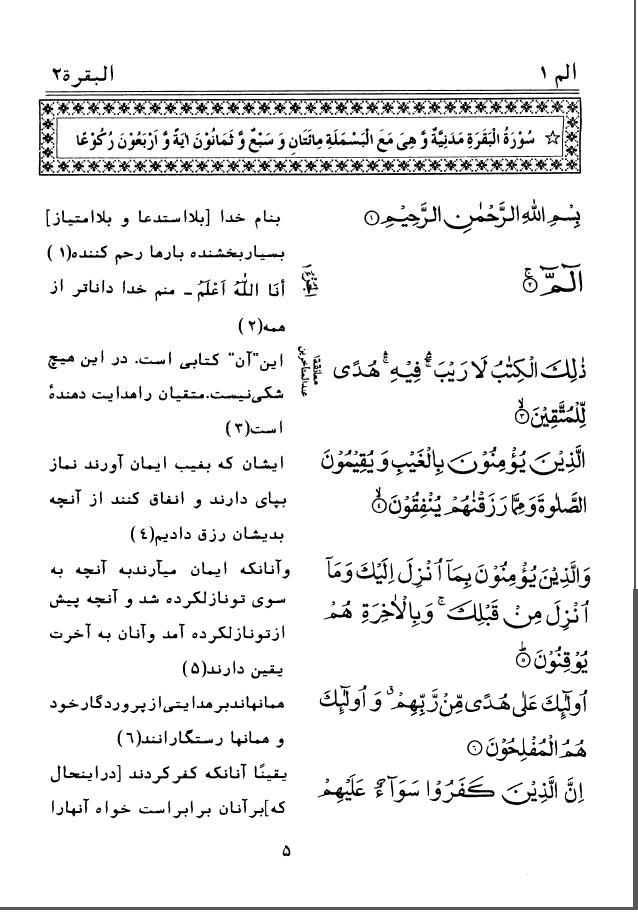 الم ١
البقرة ٢
☆ سُوْرَةُ الْبَقَرَةِ مَدَنِيَّةٌ وَّ هِىَ مَعَ الْبَسْمَلَةِ مِائَتَانِ وَ سَبْعٌ وَّ ثَمَانُوْنَ اٰيَةً وَّ اَرْبَعُوْنَ رُكُوْعًا
بِسْمِ اللّٰهِ الرَّحْمٰنِ الرَّحِيْمِ ۝١
الٓمّٓ ۚ۝٢
ذٰلِكَ الْكِتٰبُ لَا رَيْبَ ۛۖ فِيْهِ ۛۚ هُدًى
لِّلْمُتَّقِيْنَ ۙ۝٣
الَّذِيْنَ يُؤْمِنُوْنَ بِالْغَيْبِ وَ يُقِيْمُوْنَ
الصَّلٰوةَ وَمِمَّا رَزَقْنٰهُمْ يُنْفِقُوْنَ ۙ۝٤
وَالَّذِيْنَ يُؤْمِنُوْنَ بِمَآ اُنْزِلَ اِلَيْكَ وَمَآ
اُنْزِلَ مِنْ قَبْلِكَ ۚ وَبِالْاٰخِرَةِ هُمْ
يُوْقِنُوْنَ ؕ۝٥
اُولٰٓئِكَ عَلٰى هُدًى مِّنْ رَّبِّهِمْ ۗ وَ اُولٰٓئِكَ
هُمُ الْمُفْلِحُوْنَ ۝٦
اِنَّ الَّذِيْنَ كَفَرُوْا سَوَآءٌ عَلَيْهِمْ
الجزء ١
معانقة ١
عند المتأخرين
بنام خدا [بلااستدعا و بلاامتیاز]
بسیاربخشنده بارها رحم کننده(١)
أَنَا اللّٰهُ اَعْلَمُ ـ منم خدا داناتر از
همه(٢)
این"آن" کتابی است. در این هیچ
شکی‌نیست.متقیان راهدایت دهندهٔ
است(٣)
ایشان که بغیب ایمان آورند نماز
بپای دارند و انفاق کنند از آنچه
بدیشان رزق دادیم(٤)
وآنانکه ایمان میآرندبه آنچه به
سوی تونازلکرده شد و آنچه پیش
ازتونازلکرده آمد وآنان به آخرت
یقین دارند(۵)
همانهاندبرهدایتی‌ازپروردگارخود
و همانها رستگارانند(٦)
یقینًا آنانکه کفرکردند [دراینحال
که]برآنان برابراست خواه آنهارا
۵